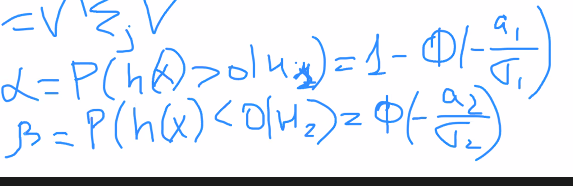 =V Σ_j V
α = P(h(x) > 0|H_1) = 1 - Φ(-a_1/σ_1)
β = P(h(x) < 0|H_2) = Φ(-a_2/σ_2)